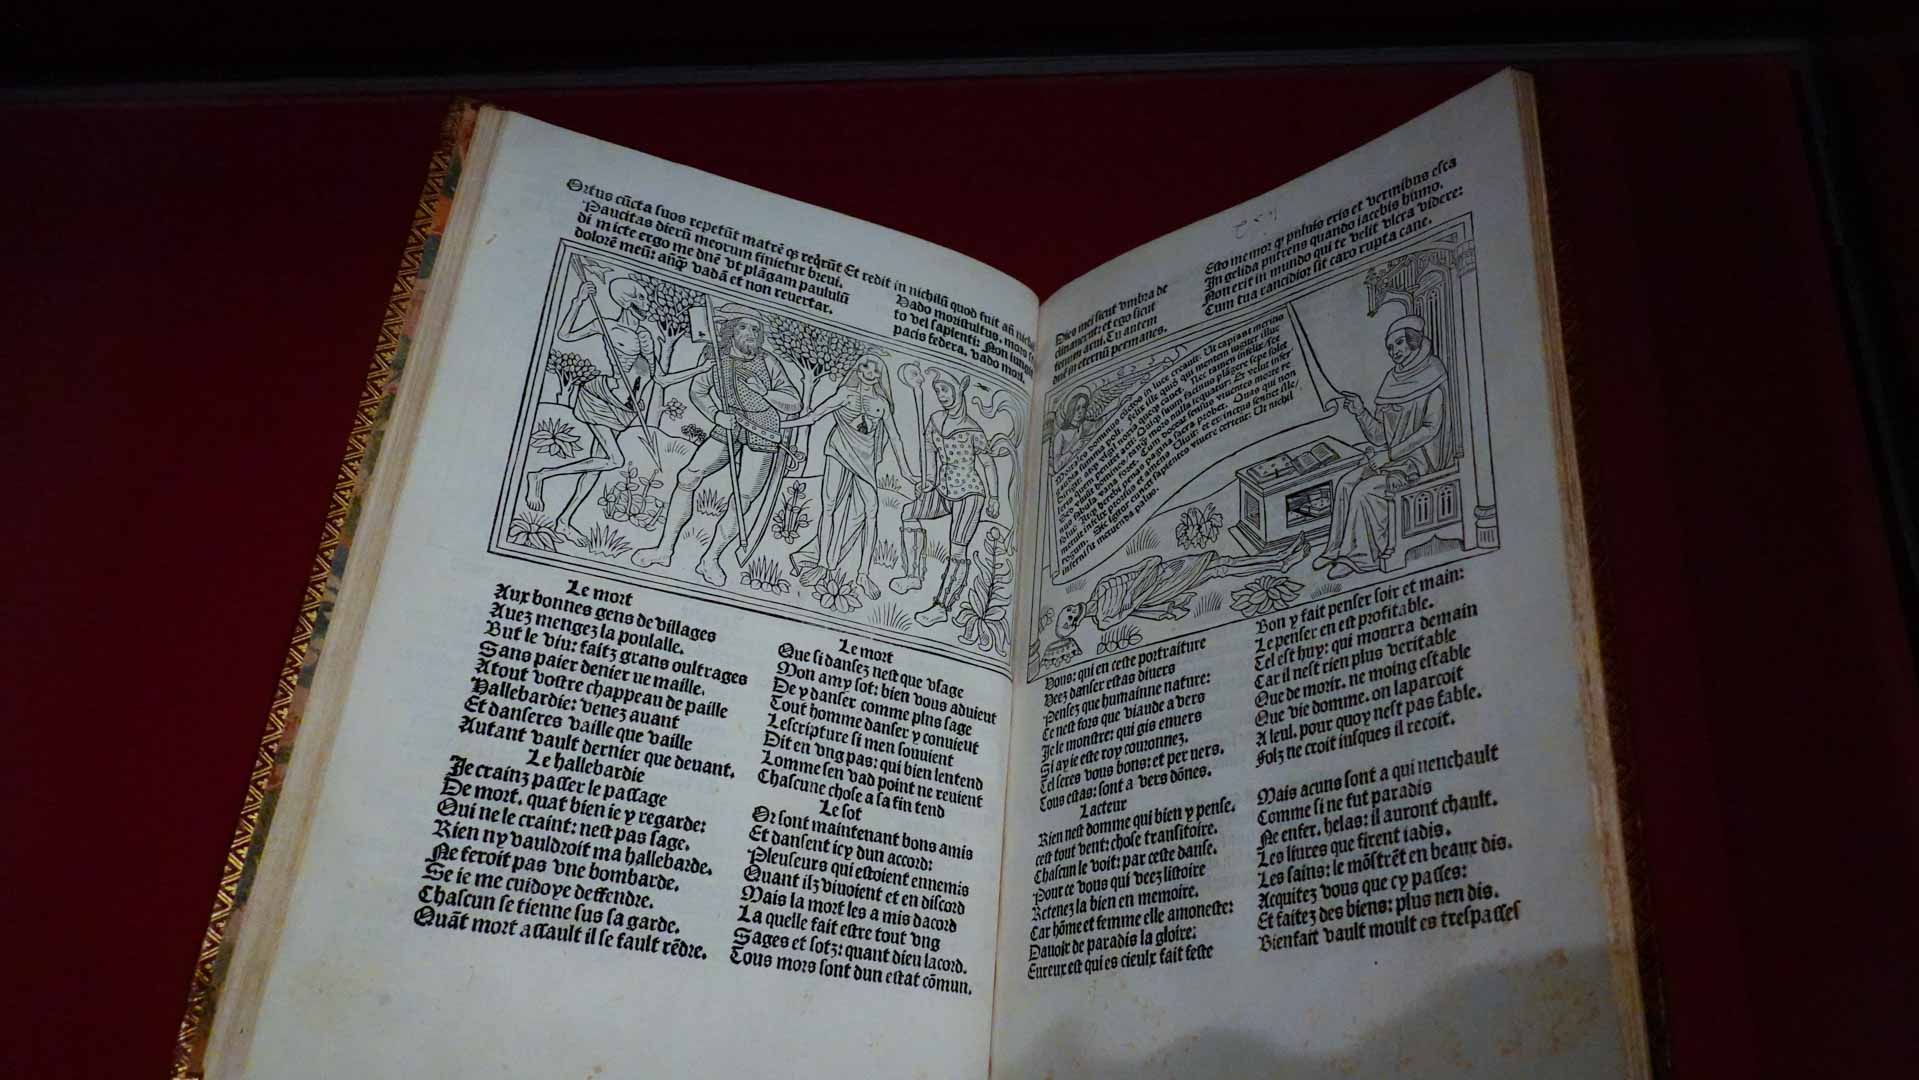 Ortus cūcta suos repetūt matrē qȝ reqͥrūt Et redit in nichilū quod fuit añ nichil
Paucitas dierū meorum finietur breui.
di micte ergo me dñe vt plāgam paululū
dolorē meū: añqȝ vadā et non reuertar.
Vado mori stultus. mors
to vel sapienti: Non iungit
pacis federa. vado mori.
Le mort
Aux bonnes gens de villages
Auez mengez la poulalle.
But le vin: faitz grans oultrages
Sans paier denier ue maille.
Atout vostre chappeau de paille
Hallebardie: venez auant
Et danseres vaille que vaille
Autant vault dernier que deuant.
Le hallebardie
Je crainz passer le passage
De mort. quāt bien ie y regarde:
Qui ne le craint: nest pas sage.
Rien ny vauldroit ma hallebarde.
Ne feroit pas vne bombarde.
Se ie me cuidoye deffendre.
Chascun se tienne sus sa garde.
Quāt mort assault il se fault rēdre.
Le mort
Que si dansez nest que vsage
Mon amy sot: bien vous aduient
De y danser comme plus sage
Tout homme danser y conuient
Lescripture si men souuient
Dit en vng pas: qui bien lentend
Lomme sen vad point ne reuient
Chascune chose a sa fin tend
Le sot
Or sont maintenant bons amis
Et dansent icy dun accord:
Pleuseurs qui estoient ennemis
Quant ilz viuoient et en discord
Mais la mort les a mis dacord
La quelle fait estre tout vng
Sages et sotz: quant dieu lacord.
Tous mors sont dun estat cōmun.
Dies mei sicut vmbra de
clinauerunt: et ego sicut
fenum arui. Tu autem
dñe in eternū permanes.
Esto memor qȝ puluis eris et vermibus esca
In gelida putrens quando iacebis humo.
Non erit in mundo qui te velit vltra videre:
Cum tua rancidior sit caro rupta cane.
Vous: qui en ceste portraiture
Veez danser estas diuers
Pensez que humainne nature:
Ce nest fors que viande a vers
Je le monstre: qui gis enuers
Si ay ie este roy couronnez.
Tel seres vous bons: et peruers.
Tous estas: sont a vers dōnes.
Lacteur
Rien nest domme qui bien y pense.
cest tout vent: chose transitoire.
Chascun le voit: par ceste danse.
Pour ce vous qui veez listoire
Retenez la bien en memoire.
Car hōme et femme elle amoneste:
Dauoir de paradis la gloire:
Eureux est qui es cieulx fait feste
Bon y fait penser soir et main:
Le penser en est profitable.
Tel est huy: qui mourra demain
Car il nest rien plus veritable
Que de morir. ne moing estable
Que vie domme. on laparcoit
A leul. pour quoy nest pas fable.
Folz ne croit iusques il recoit.
Mais acuns sont a qui nenchault
Comme si ne fut paradis
Ne enfer. helas: il auront chault.
Les liures que firent iadis.
Les sains: le mōstrēt en beaux dis.
Acquitez vous que cy passes:
Et faitez des biens: plus nen dis.
Bienfait vault moult es trespasses